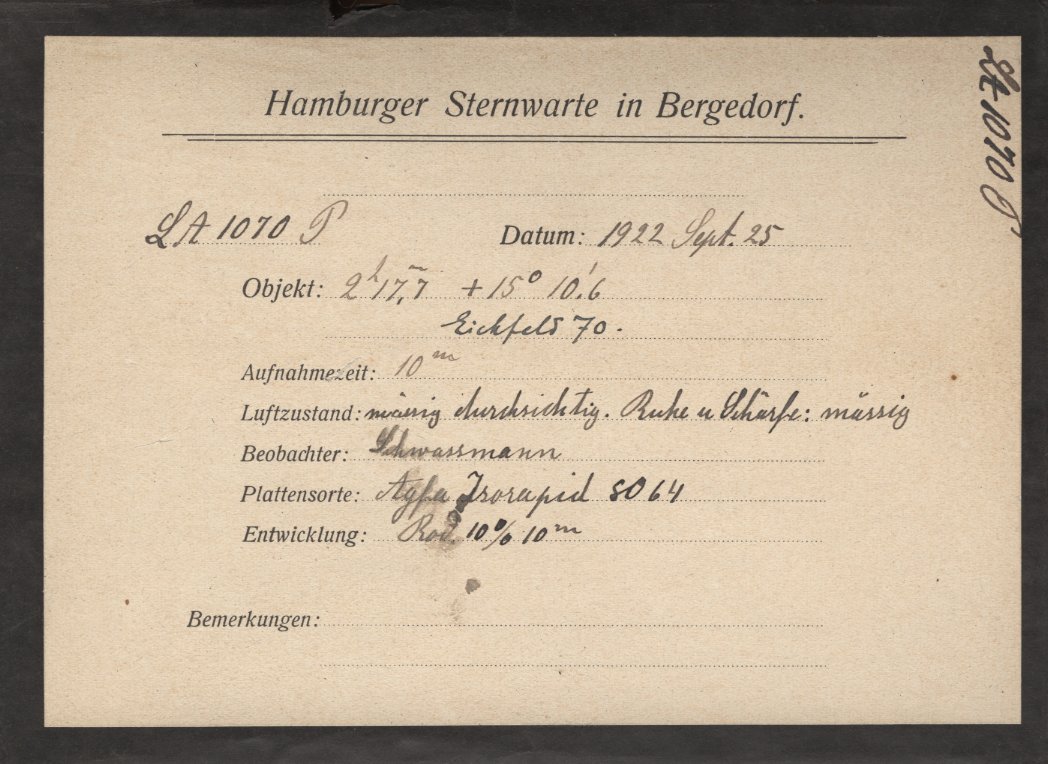 Hamburger Sternwarte in Bergedorf.
LA 1070 P
LA 1070 P Datum: 1922 Sept. 25
Objekt: 2h 17,m7 + 15° 10,'6
Eichfeld 70.
Aufnahmezeit: 10m
Luftzustand: mässig durchsichtig. Ruhe u Schärfe: mässig
Beobachter: Schwassmann
Plattensorte: Agfa Isorapid 8064
Entwicklung: Rod. 10% 10m
Bemerkungen: